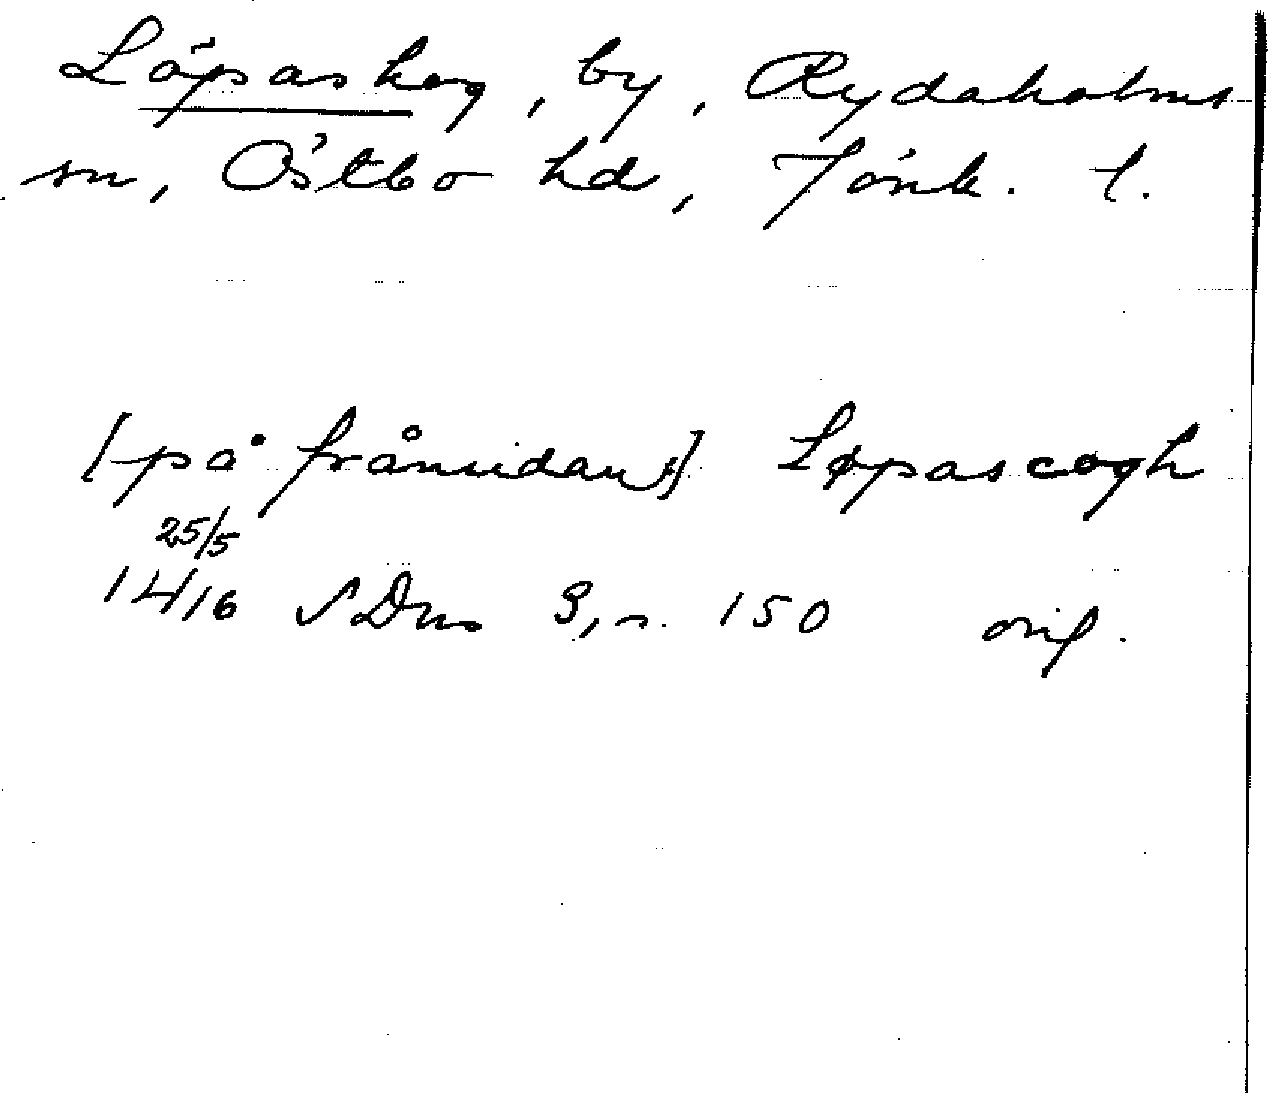 Löpaskog, by, Rydaholms
sn, Östbo hd, Jönk. l.
[på frånsidan] Løpascogh
25/5
1416 SDns 3, s. 150 orig.